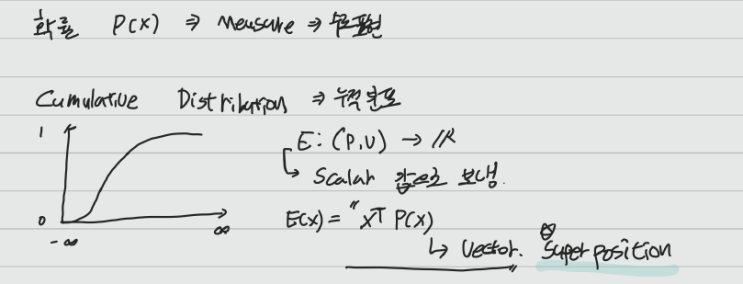 확률 P(x) ⇒ Measure ⇒ 수로 표현
Cumulative Distribution ⇒ 누적분포
1
E: (P,U) → ℝ
↳ Scalar 값으로 보냄.
0
-∞
∞
E(x) = " xT P(x)
↳ Vector. Super position